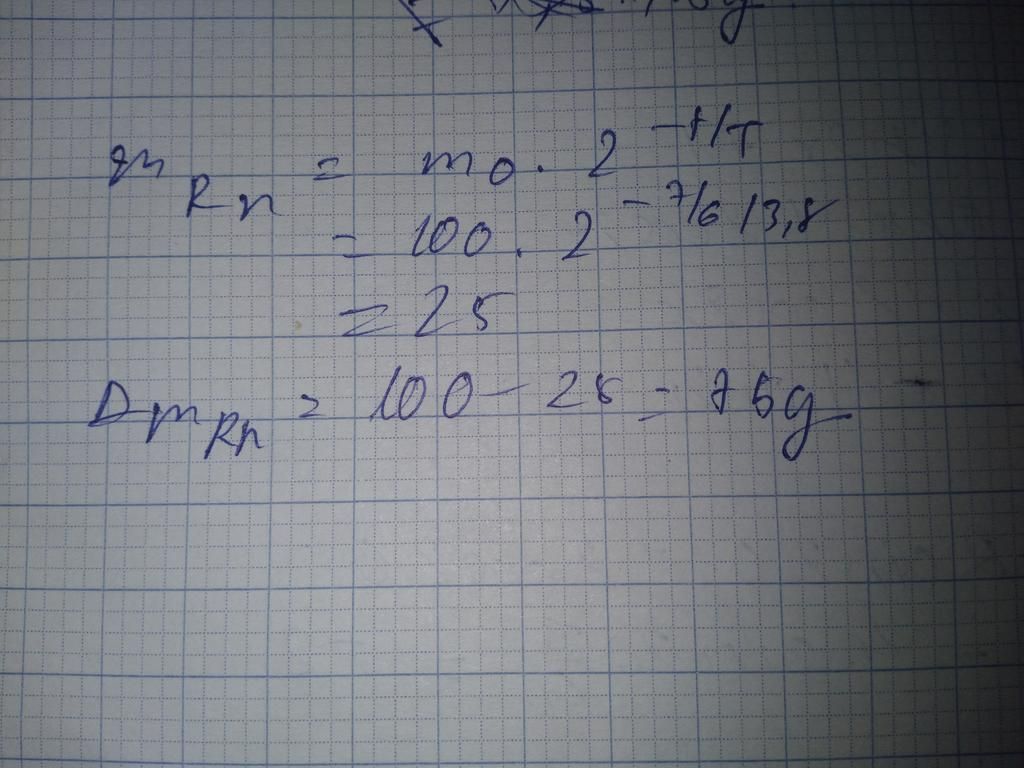 m Rn = m0 . 2 -t/T
= 100 . 2 - 7/6 / 3,8
= 25
Dm Rn = 100 - 25 = 75g